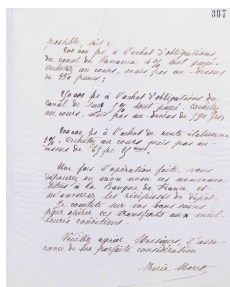 387
possible, soit :
200 000 frs à l'achat d'obligations
du canal de Panama 5% tout payé.
achetez au cours, mais pas au-dessus
de 450 francs ;
250 000 frs à l'achat d'obligations du
Canal de Suez 5% tout payé. Achetez
au cours, mais pas au-dessus de 590 frs.
200.000 frs à l'achat de rente italienne
5%. achetez au cours mais pas au-
dessus de
Une fois l'opération faite, vous
déposerez en mon nom ces nouveaux
titres à la Banque de France et
m'enverrez les récépissés de dépôt.
Je compte sur vos bons soins
pour opérer ces transferts aux meil-
leures conditions.
Veuillez agréer Messieurs, l'assu-
rance de ma parfaite considération
Marie Moret